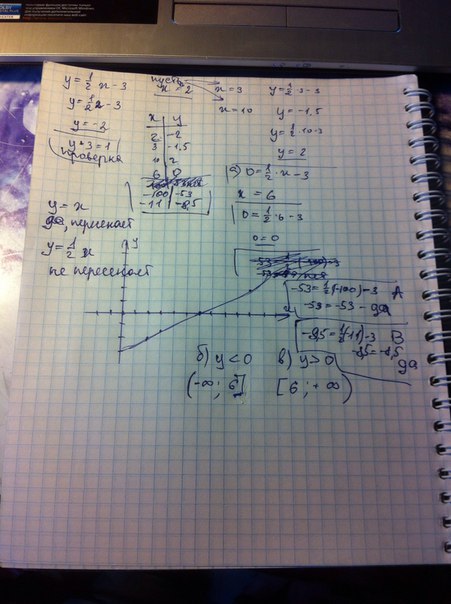 y = 1/2 · x - 3
y = 1/2 2 - 3
y = -2
y + 3 = 1
проверка
пусть
x = 2
x = 3
x = 10
y = 1/2 · 3 - 3
y = -1,5
y = 1/2 · 10 - 3
y = 2
x | y
2 | -2
3 | -1,5
10 | 2
6 | 0
-100 | -53
-11 | -8,5
0 = 1/2 · x - 3
x = 6
0 = 1/2 · 6 - 3
0 = 0
y = x
да, пересекает
y = 1/2 x
не пересекает
y
-53 = 1/2 (-100) - 3 A
-53 = -53 - да
-8,5 = 1/2 (-11) - 3 B
-8,5 = -8,5
да
б) y < 0
(-∞; 6]
в) y > 0
[6; +∞)